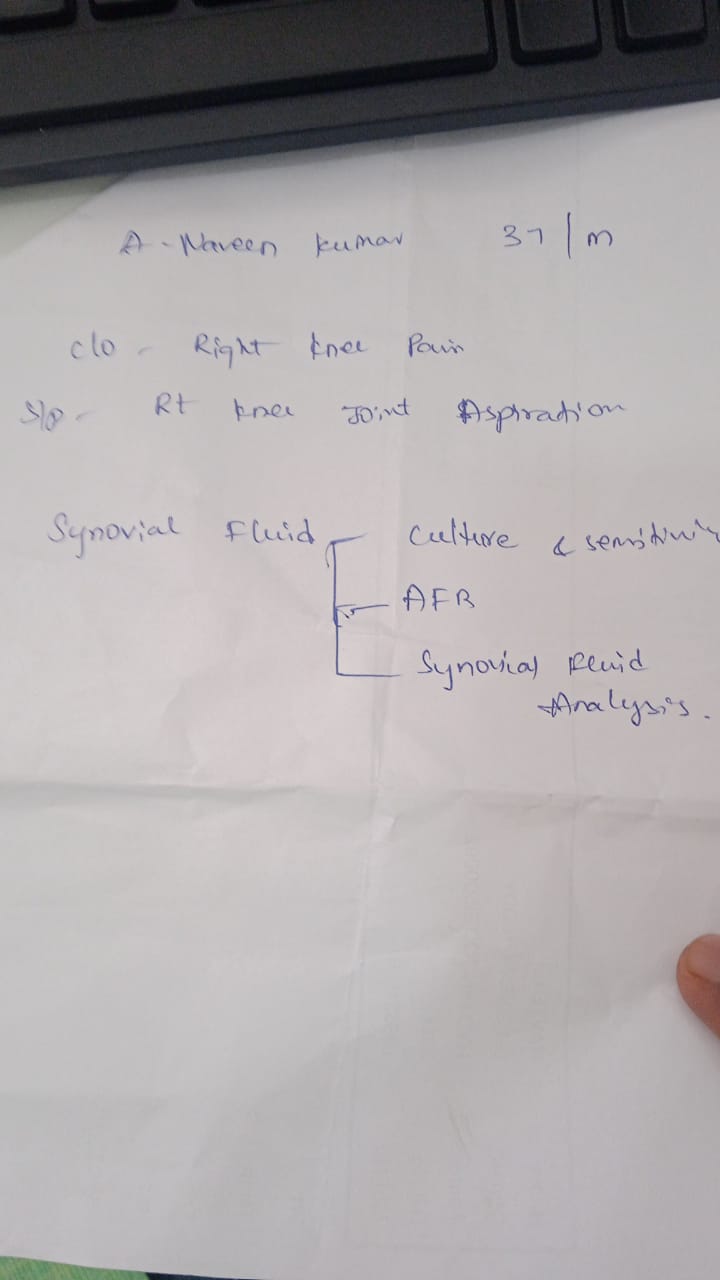 A. Naveen kumar 37/m
c/o - Right knee Pain
S/o - Rt knee Joint Aspiration
Synovial Fluid - Culture & sensitivi
- AFB
Synovial Fluid
Analysis.